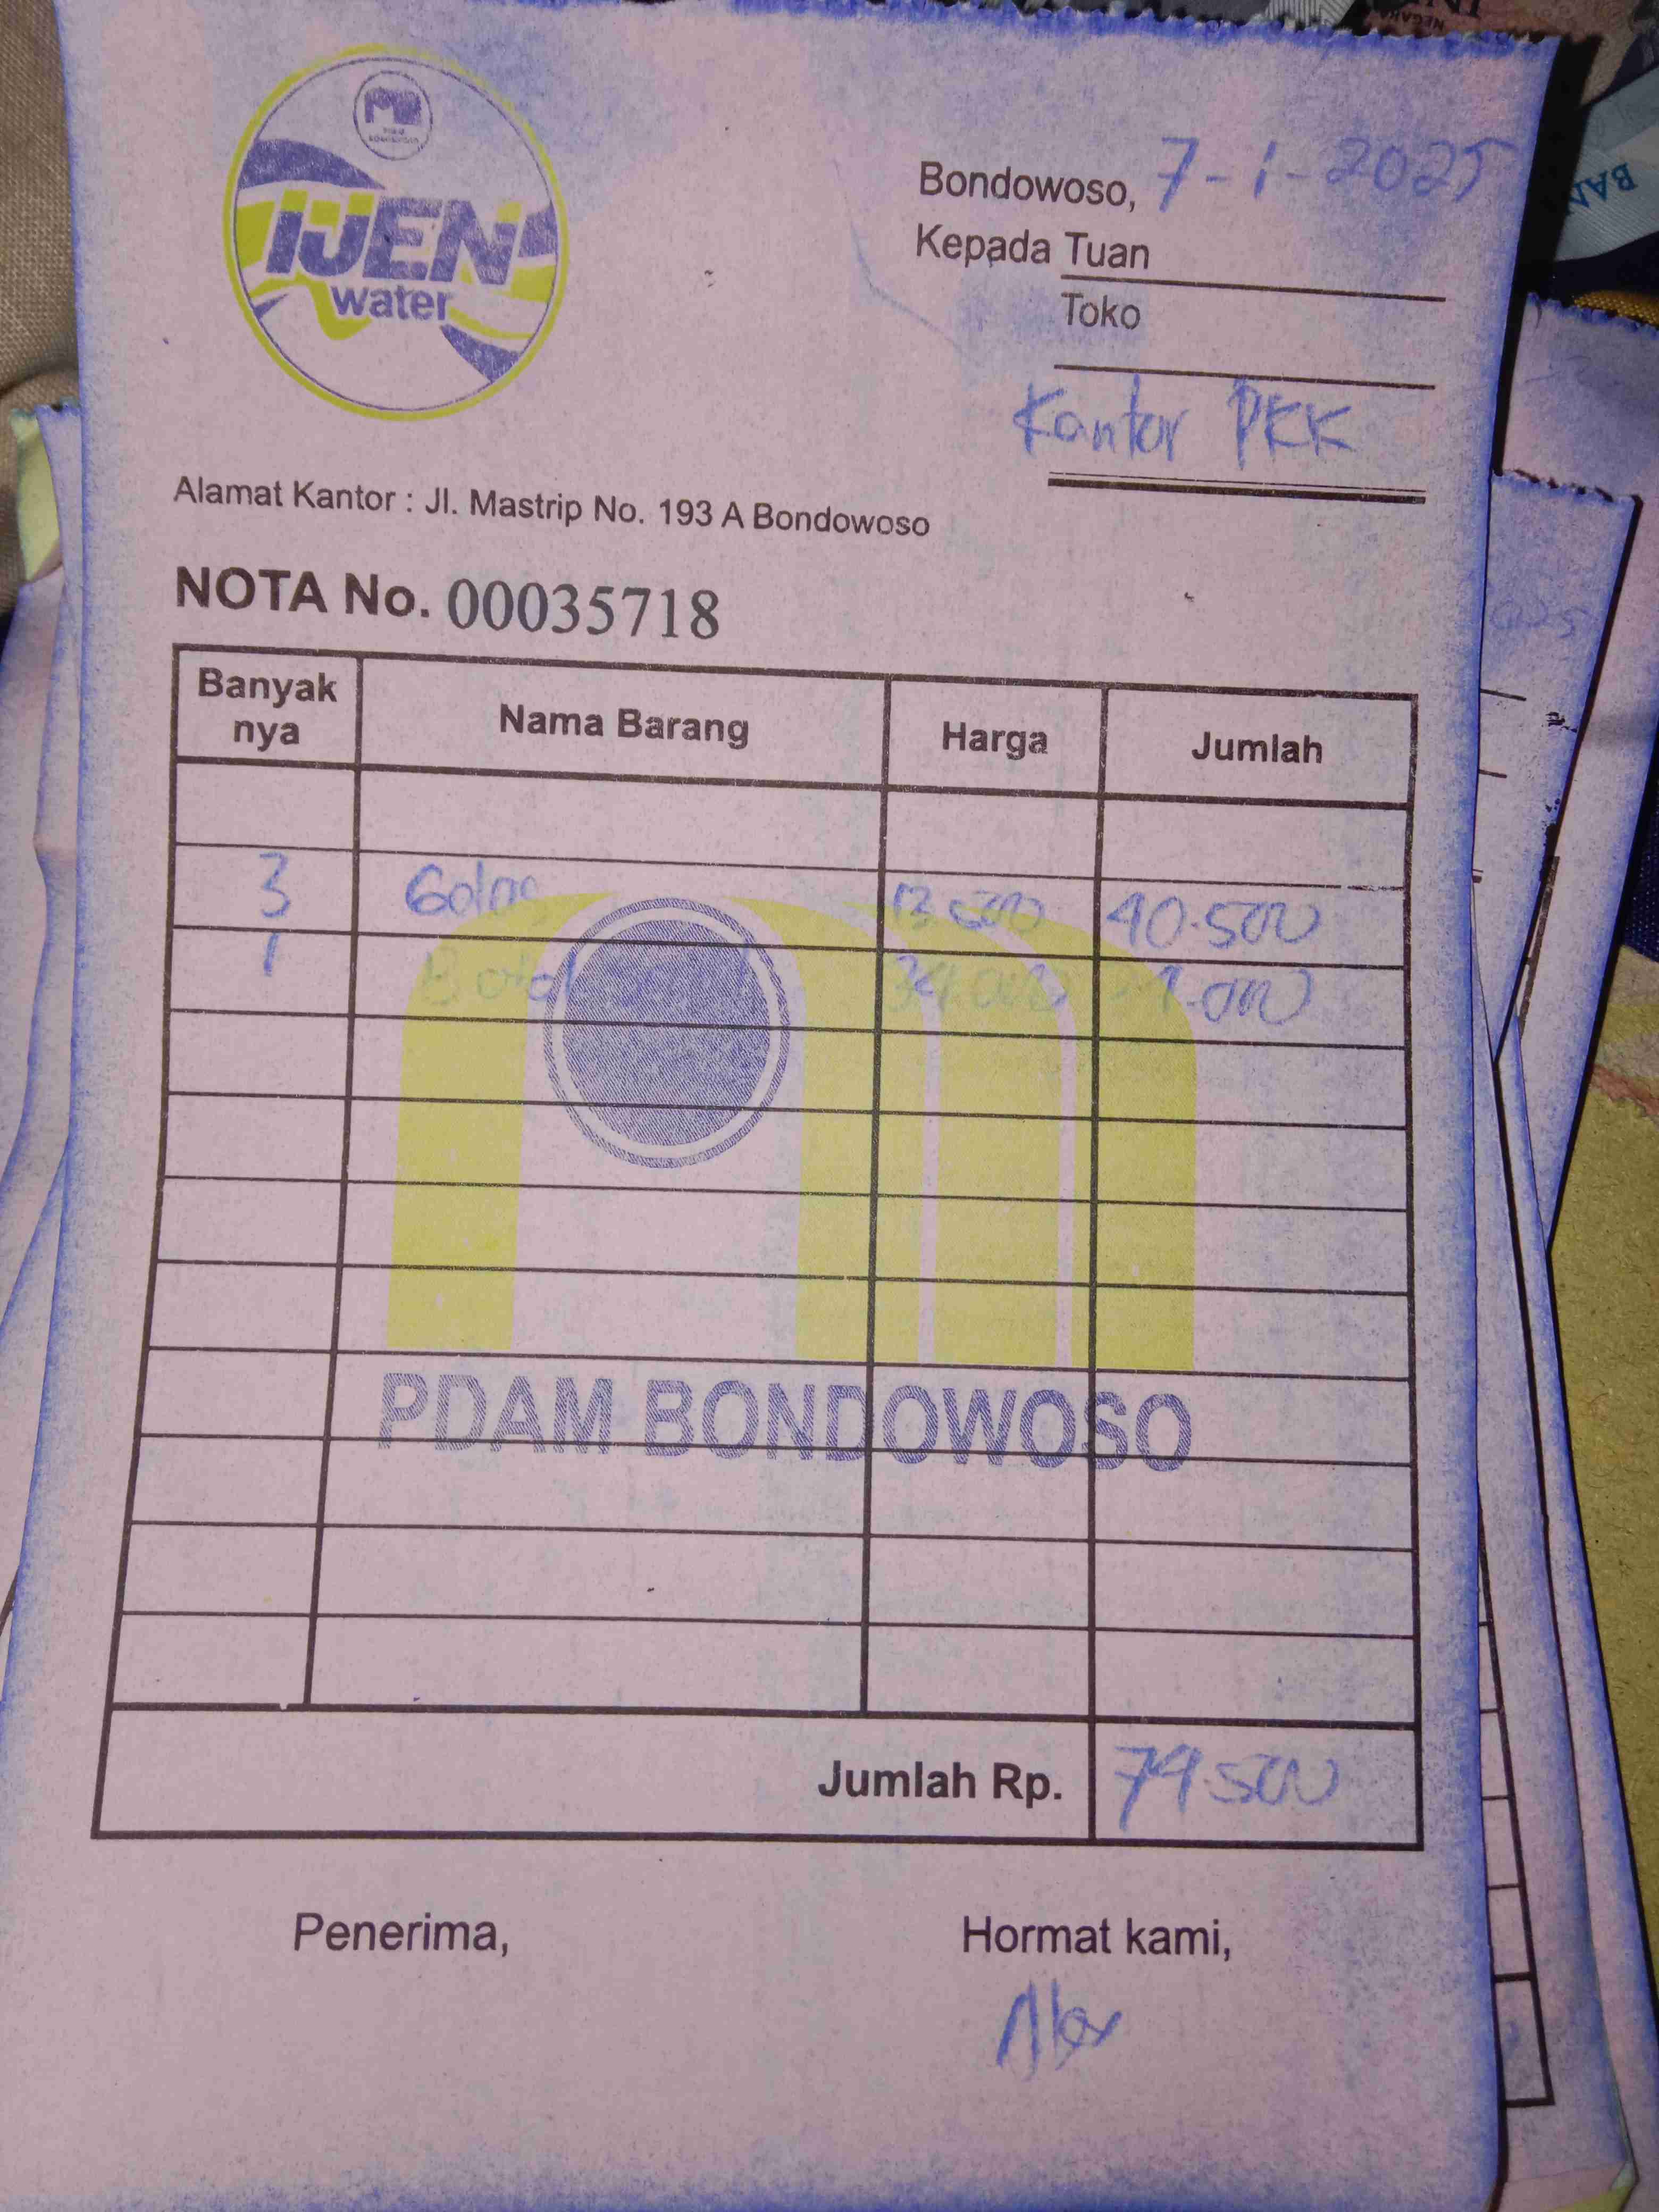 IJEN
water
Bondowoso, 7-1-2025
Kepada Tuan
Toko
Kantor PKK
Alamat Kantor : Jl. Mastrip No. 193 A Bondowoso
NOTA No. 00035718
Banyak nya Nama Barang Harga Jumlah
3 Gelas 13.500 40.500
1 Botol 34.000
PDAM BONDOWOSO
Jumlah Rp. 74.500
Penerima, Hormat kami,